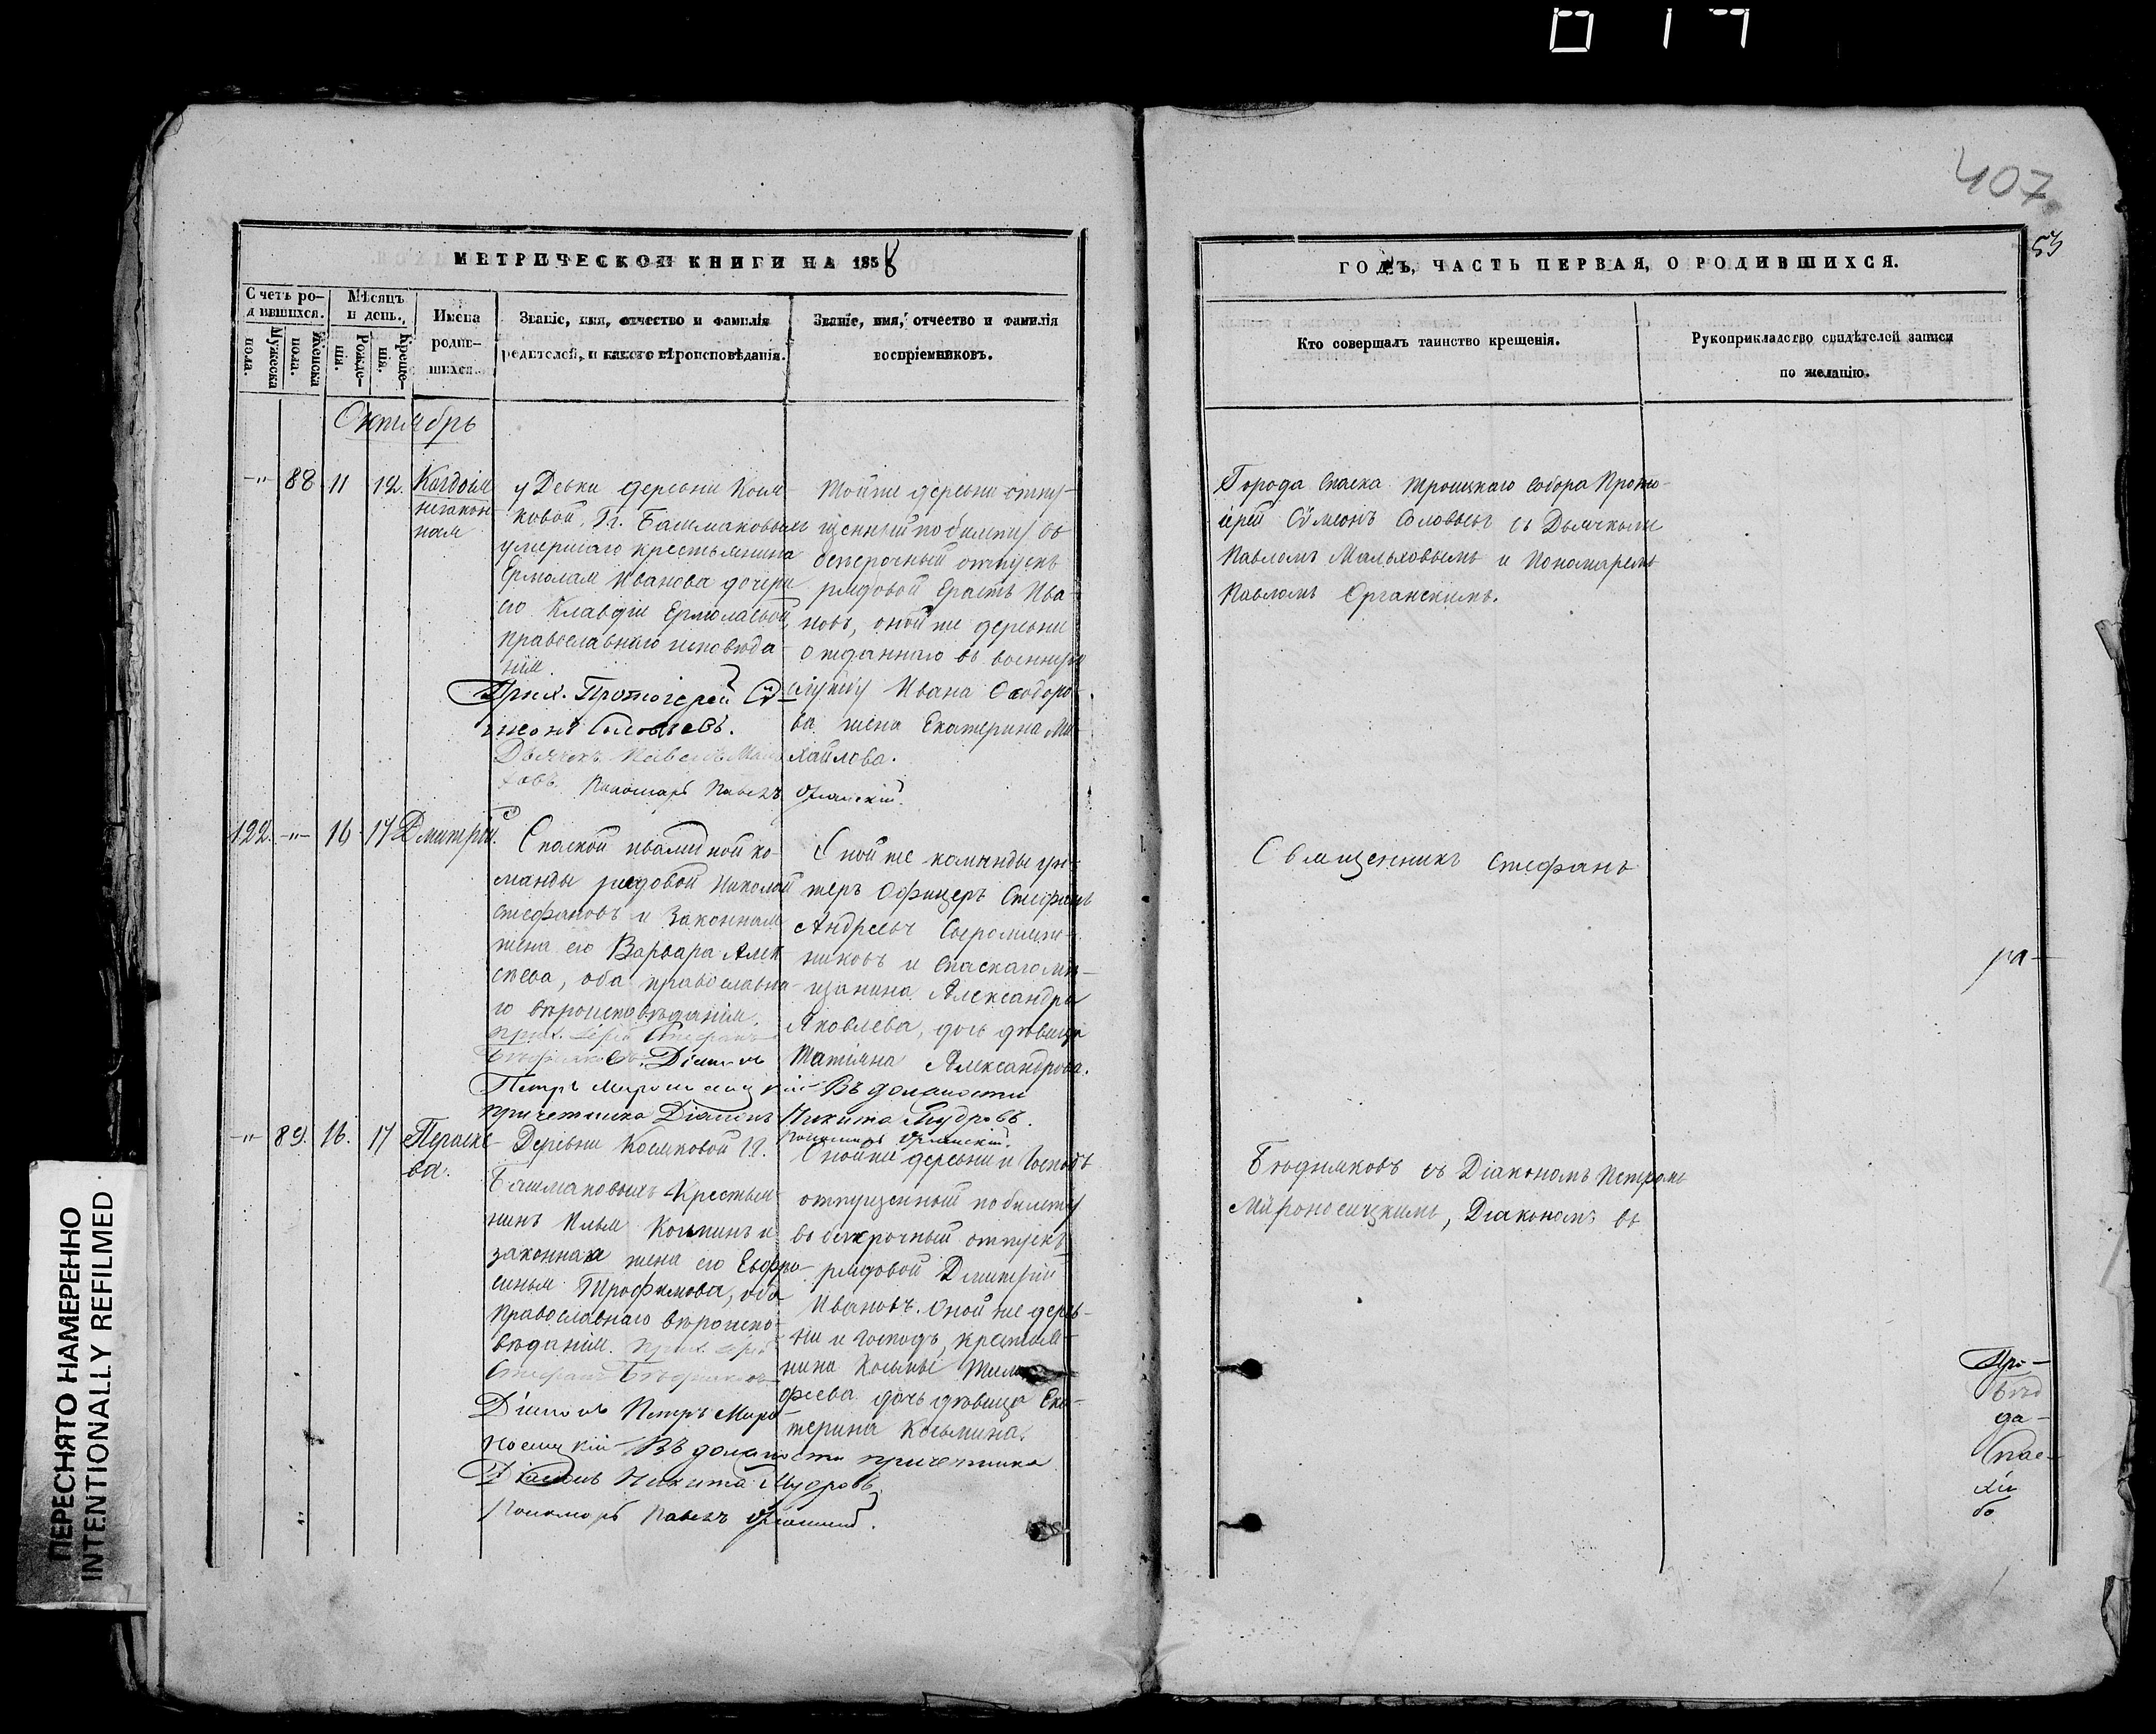 407.
53
МЕТРИЧЕСКОЙ КНИГИ НА 1858
Счетъ ро-
дившихся.
Мужеска
пола.
Женска
пола.
Мѣсяцъ
и день.
Рожде-
нія.
Креще-
нія.
Имена
родив-
шихся.
Званіе, имя, отчество и фамилія
родителей, и какого вѣроисповѣданія.
Званіе, имя, отчество и фамилія
воспріемниковъ.
Октябрь
-"- 88 11 12.
незакон
ная
у Девки деревни Кош-
ковой, Гг. Башмаковыхъ
умершаго крестьянина
Ермолая Иванова дочери
его Клавдіи Ермолаевой
православнаго исповѣда-
нія.
Прих. Протоіерей Сѵ-
меонъ Соловьевъ.
Дьячекъ Павелъ Маль
ховъ Пономарь Павелъ Органскій.
Тойже деревни отпу-
щенный по билету въ
безсрочный отпускъ
рядовой Ерастъ Ива-
новъ, оной же деревни
отданнаго въ военную
службу Ивана Ѳеодоро-
ва жена Екатерина Ми-
хайлова.
122. -"- 16 17 Дмитрій.
Спаской инвалидной ко-
манды рядовой Николай
Стефановъ и законная
жена его Варвара Алек
сѣева, оба православна-
го вѣроисповѣданія.
Прих. Іерей Стефанъ
Бѣдняковъ. Діаконъ
Петръ Мироносицкій Въ должности
причетника Діаконъ Никита Мудровъ.
Пономарь Органскій.
Оной же команды ун-
теръ Офицеръ Стефанъ
Андреевъ Сыромят-
никовъ и Спаскаго мѣ-
щанина Александра
Яковлева, дочь дѣвица
Татіяна Александрова.
-"- 89. 16. 17 Параске-
ва.
Деревни Кошковой Гг.
Башмаковыхъ Крестья-
нинъ Илья Козминъ и
законная жена его Евфро-
синья Трофимова, оба
православнаго вѣроиспо-
вѣданія. Прих. Іерей
Стефанъ Бѣдняковъ
Діаконъ Петръ Миро-
носицкій Въ должности причетника
Діаконъ Никита Мудровъ
Пономарь Павелъ Органскій.
Онойже деревни и Господъ
отпущенный по билету
въ безсрочный отпускъ
рядовой Дмитрій
Ивановъ. Оной же дерев-
ни и Господъ, крестья-
нина Козьмы Тимо
феева дочь дѣвица Ека-
терина Козьмина.
ГОДЪ, ЧАСТЬ ПЕРВАЯ, О РОДИВШИХСЯ.
Кто совершалъ таинство крещенія.
Рукоприкладство свидѣтелей записи
по желанію.
Города Спаска Троицкаго Собора Прото-
іерей Сѵмеонъ Соловьевъ съ Дьячкомъ
Павломъ Мальховымъ и Пономаремъ
Павломъ Органскимъ.
Священникъ Стефанъ
Бѣдняковъ съ Діакономъ Петромъ
Мѵроносицкимъ, Діакономъ въ
да-
Спас-
ПЕРЕСНЯТО НАМЕРЕННО
INTENTIONALLY REFILMED